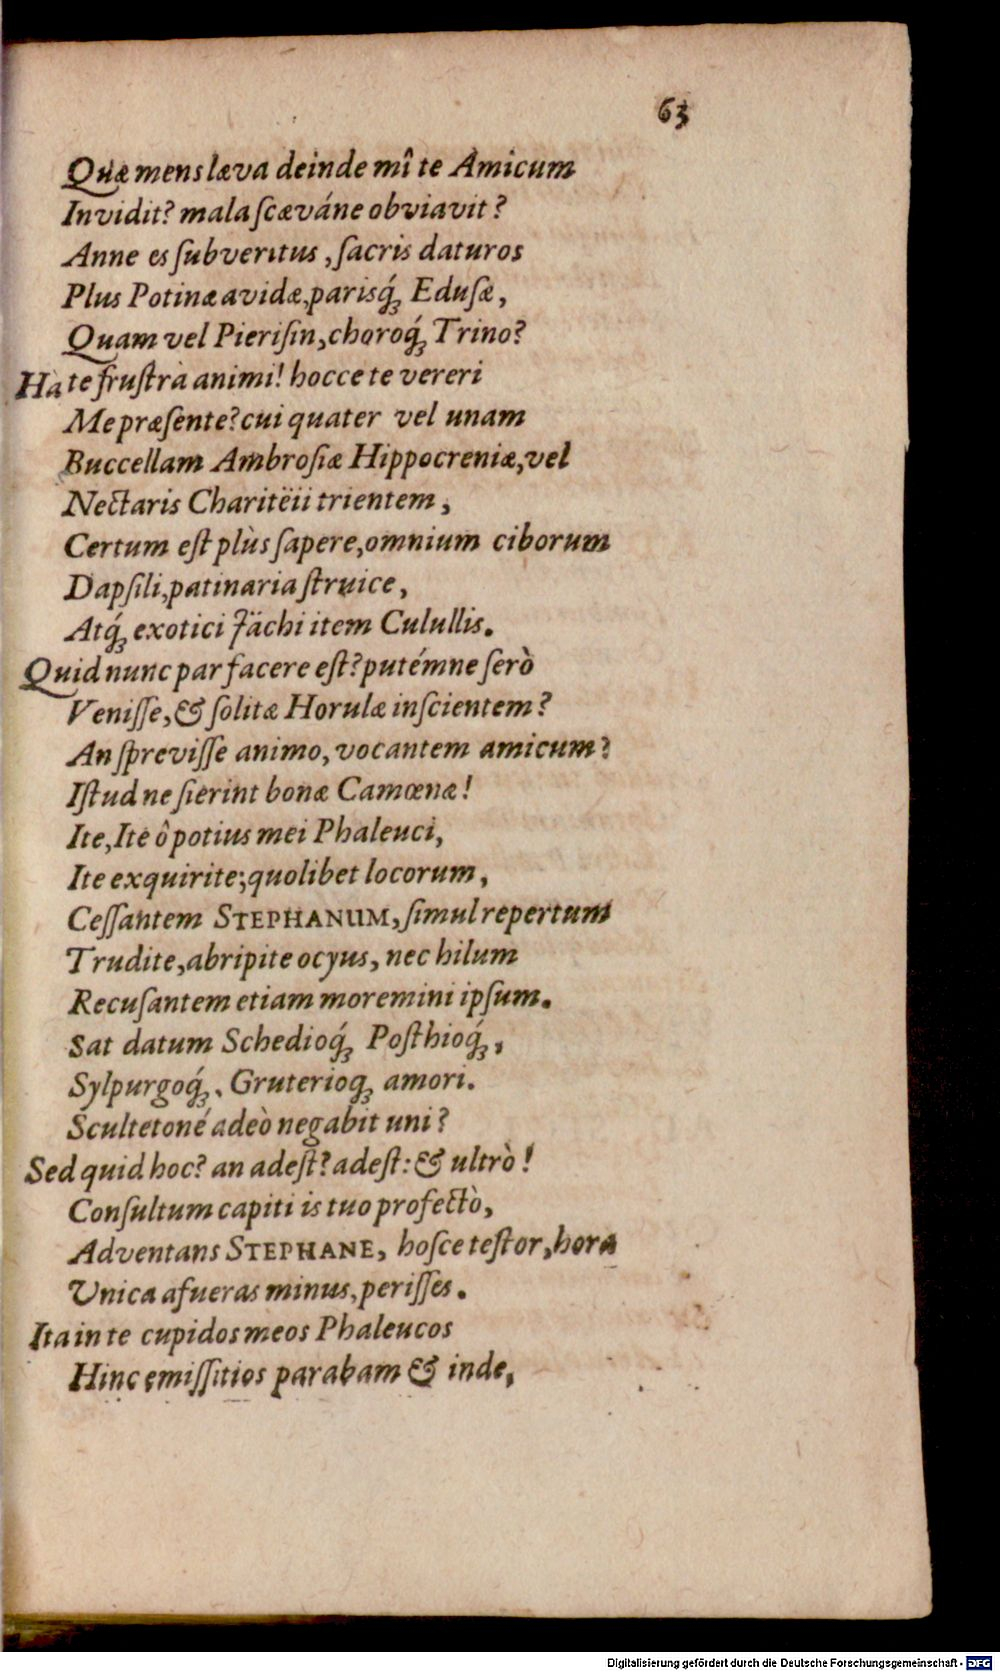 63
Quæ mens læva deinde mî te Amicum
Invidit? mala scæváne obviavit?
Anne es subveritus, sacris daturos
Plus Potinæ avidæ, parisq́ꝫ Edusæ,
Quam vel Pierisin, choroq́ꝫ Trino?
Hà te frustra animi! hocce te vereri
Me præsente? cui quater vel unam
Buccellam Ambrosiæ Hippocreniæ, vel
Nectaris Charitëii trientem,
Certum est plùs sapere, omnium ciborum
Dapsili, patinaria struice,
Atq́ꝫ exotici Jächi item Culullis.
Quid nunc par facere est? putémne serò
Venisse, & solitæ Horulæ inscientem?
An sprevisse animo, vocantem amicum?
Istud ne sierint bonæ Camœnæ!
Ite, Ite ô potius mei Phaleuci,
Ite exquirite; quolibet locorum,
Cessantem STEPHANUM, simul repertum
Trudite, abripite ocyus, nec hilum
Recusantem etiam moremini ipsum.
Sat datum Schedioq́ꝫ Posthioq́ꝫ,
Sylpurgoq́ꝫ, Gruterioqꝫ amori.
Scultetoné adeò negabit uni?
Sed quid hoc? an adest? adest: & ultrò!
Consultum capiti is tuo profectò,
Adventans STEPHANE, hosce testor, hora
Unica afueras minus, perisses.
Ita in te cupidos meos Phaleucos
Hinc emissitios parabam & inde,
Digitalisierung gefördert durch die Deutsche Forschungsgemeinschaft - DFG